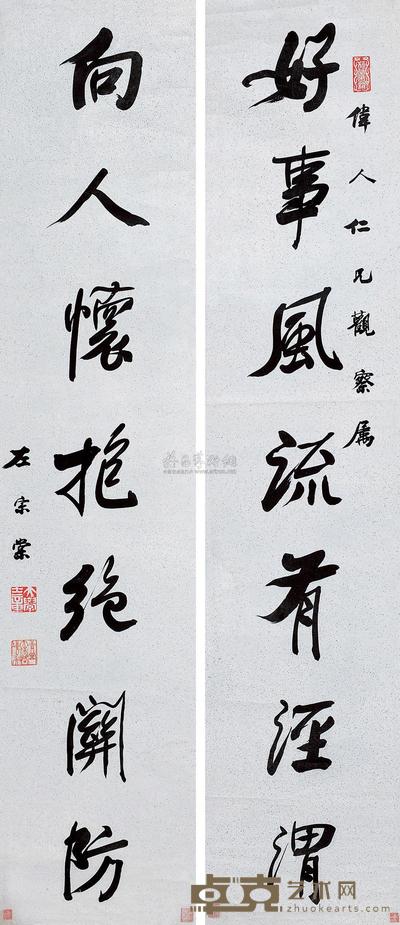 偉人仁兄觀察属
好事風流有涇渭
向人懷抱絶關防
左宗棠
卓克艺术网
zhuokearts.com